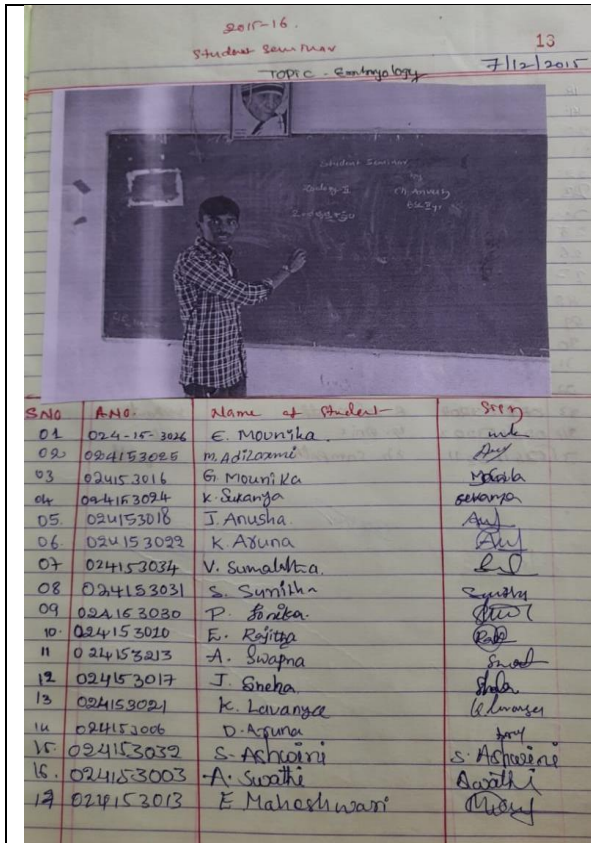 2015-16.
Student Seminar
13
7/12/2015
TOPIC - Embryology
Student Seminar
by
Zoology-II M. Anvesh
SNO ANO. Name of Student Sign
01 024-15-3026 E. Mounika
02 024153025 M. Adilaxmi
03 024153016 G. Mounika
04 024153024 K. Sukanya Sukanya
05. 024153018 J. Anusha.
06. 024153022 K. Aruna
07 024153034 V. Sumalatha.
08 024153031 S. Sunitha
09 024153030 P.
10. 024153020 E. Rajitha
11 024153213 A. Swapna
12 024153017 J. Sneha.
13 024153021 K. Lavanya K Lavanya
14 024153006 D. Aruna
15. 024153032 S. Ashwini S. Ashwini
16. 024153003 A. Swathi Swathi
17 024153013 E Maheshwari